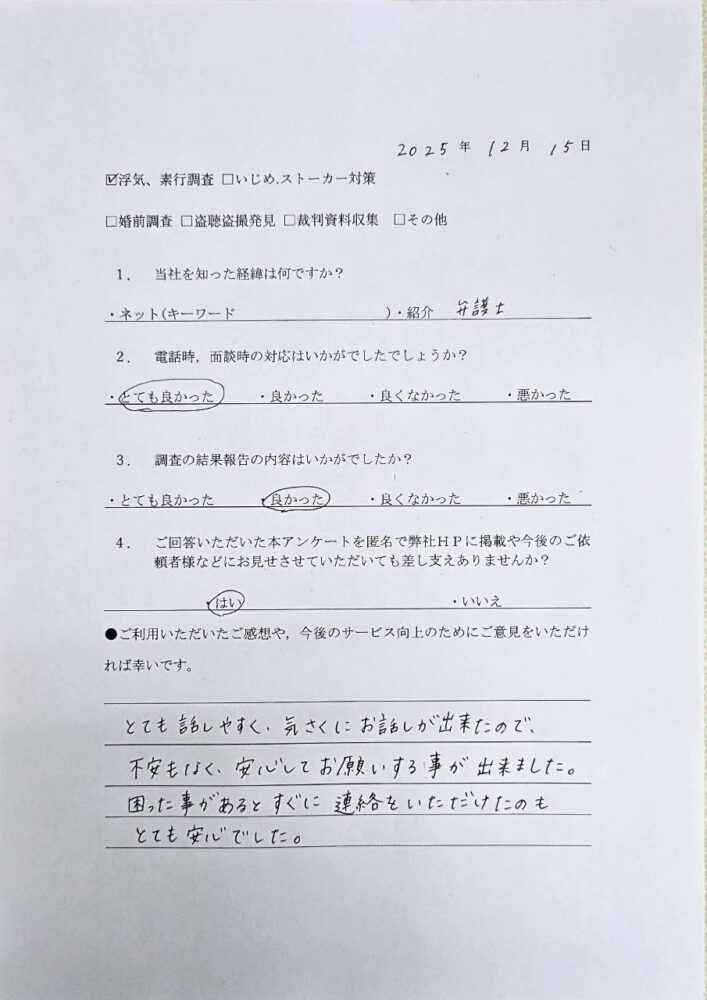 2025年 12月 15日
☑浮気、素行調査 □いじめ,ストーカー対策
□婚前調査 □盗聴盗撮発見 □裁判資料収集 □その他
1. 当社を知った経緯は何ですか？
・ネット(キーワード )・紹介 弁護士
2. 電話時，面談時の対応はいかがでしたでしょうか？
・とても良かった ・良かった ・良くなかった ・悪かった
3. 調査の結果報告の内容はいかがでしたか？
・とても良かった ・良かった ・良くなかった ・悪かった
4. ご回答いただいた本アンケートを匿名で弊社ＨＰに掲載や今後のご依
頼者様などにお見せさせていただいても差し支えありませんか？
・はい ・いいえ
●ご利用いただいたご感想や，今後のサービス向上のためにご意見をいただけ
れば幸いです。
とても話しやすく、気さくにお話しが出来たので、
不安もなく、安心してお願いする事が出来ました。
困った事があるとすぐに連絡をいただけたのも
とても安心でした。